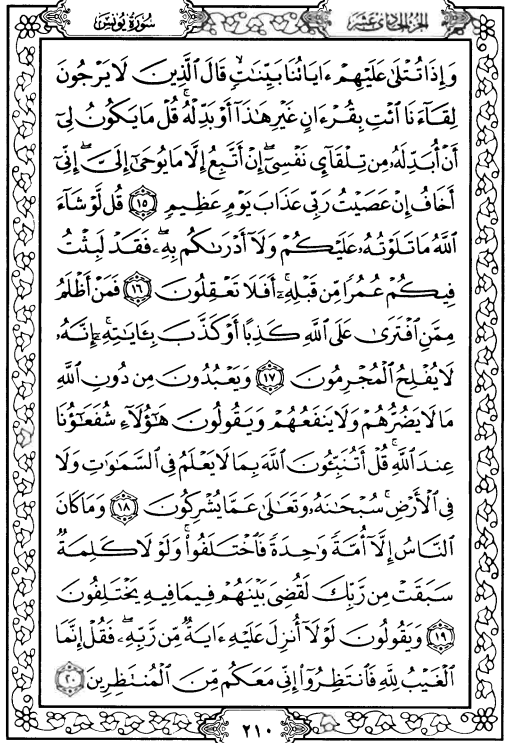 سُورَةُ يُونُسَ
الجُزءُ الحَادِى عَشَرَ
وَإِذَا تُتْلَىٰ عَلَيْهِمْ ءَايَاتُنَا بَيِّنَـٰتٍ قَالَ ٱلَّذِينَ لَا يَرْجُونَ
لِقَآءَنَا ٱئْتِ بِقُرْءَانٍ غَيْرِ هَـٰذَآ أَوْ بَدِّلْهُ ۚ قُلْ مَا يَكُونُ لِىٓ
أَنْ أُبَدِّلَهُۥ مِن تِلْقَآئِ نَفْسِىٓ ۖ إِنْ أَتَّبِعُ إِلَّا مَا يُوحَىٰٓ إِلَىَّ ۖ إِنِّىٓ
أَخَافُ إِنْ عَصَيْتُ رَبِّى عَذَابَ يَوْمٍ عَظِيمٍ ١٥ قُل لَّوْ شَآءَ
ٱللَّهُ مَا تَلَوْتُهُۥ عَلَيْكُمْ وَلَآ أَدْرَىٰكُم بِهِۦ ۖ فَقَدْ لَبِثْتُ
فِيكُمْ عُمُرًا مِّن قَبْلِهِۦٓ ۚ أَفَلَا تَعْقِلُونَ ١٦ فَمَنْ أَظْلَمُ
مِمَّنِ ٱفْتَرَىٰ عَلَى ٱللَّهِ كَذِبًا أَوْ كَذَّبَ بِـَٔايَـٰتِهِۦٓ ۚ إِنَّهُۥ
لَا يُفْلِحُ ٱلْمُجْرِمُونَ ١٧ وَيَعْبُدُونَ مِن دُونِ ٱللَّهِ
مَا لَا يَضُرُّهُمْ وَلَا يَنفَعُهُمْ وَيَقُولُونَ هَـٰٓؤُلَآءِ شُفَعَـٰٓؤُنَا
عِندَ ٱللَّهِ ۚ قُلْ أَتُنَبِّـُٔونَ ٱللَّهَ بِمَا لَا يَعْلَمُ فِى ٱلسَّمَـٰوَٰتِ وَلَا
فِى ٱلْأَرْضِ ۚ سُبْحَـٰنَهُۥ وَتَعَـٰلَىٰ عَمَّا يُشْرِكُونَ ١٨ وَمَا كَانَ
ٱلنَّاسُ إِلَّآ أُمَّةً وَٰحِدَةً فَٱخْتَلَفُوا۟ ۚ وَلَوْلَا كَلِمَةٌ
سَبَقَتْ مِن رَّبِّكَ لَقُضِىَ بَيْنَهُمْ فِيمَا فِيهِ يَخْتَلِفُونَ
١٩ وَيَقُولُونَ لَوْلَآ أُنزِلَ عَلَيْهِ ءَايَةٌ مِّن رَّبِّهِۦ ۖ فَقُلْ إِنَّمَا
ٱلْغَيْبُ لِلَّهِ فَٱنتَظِرُوٓا۟ إِنِّى مَعَكُم مِّنَ ٱلْمُنتَظِرِينَ ٢٠
٢١٠